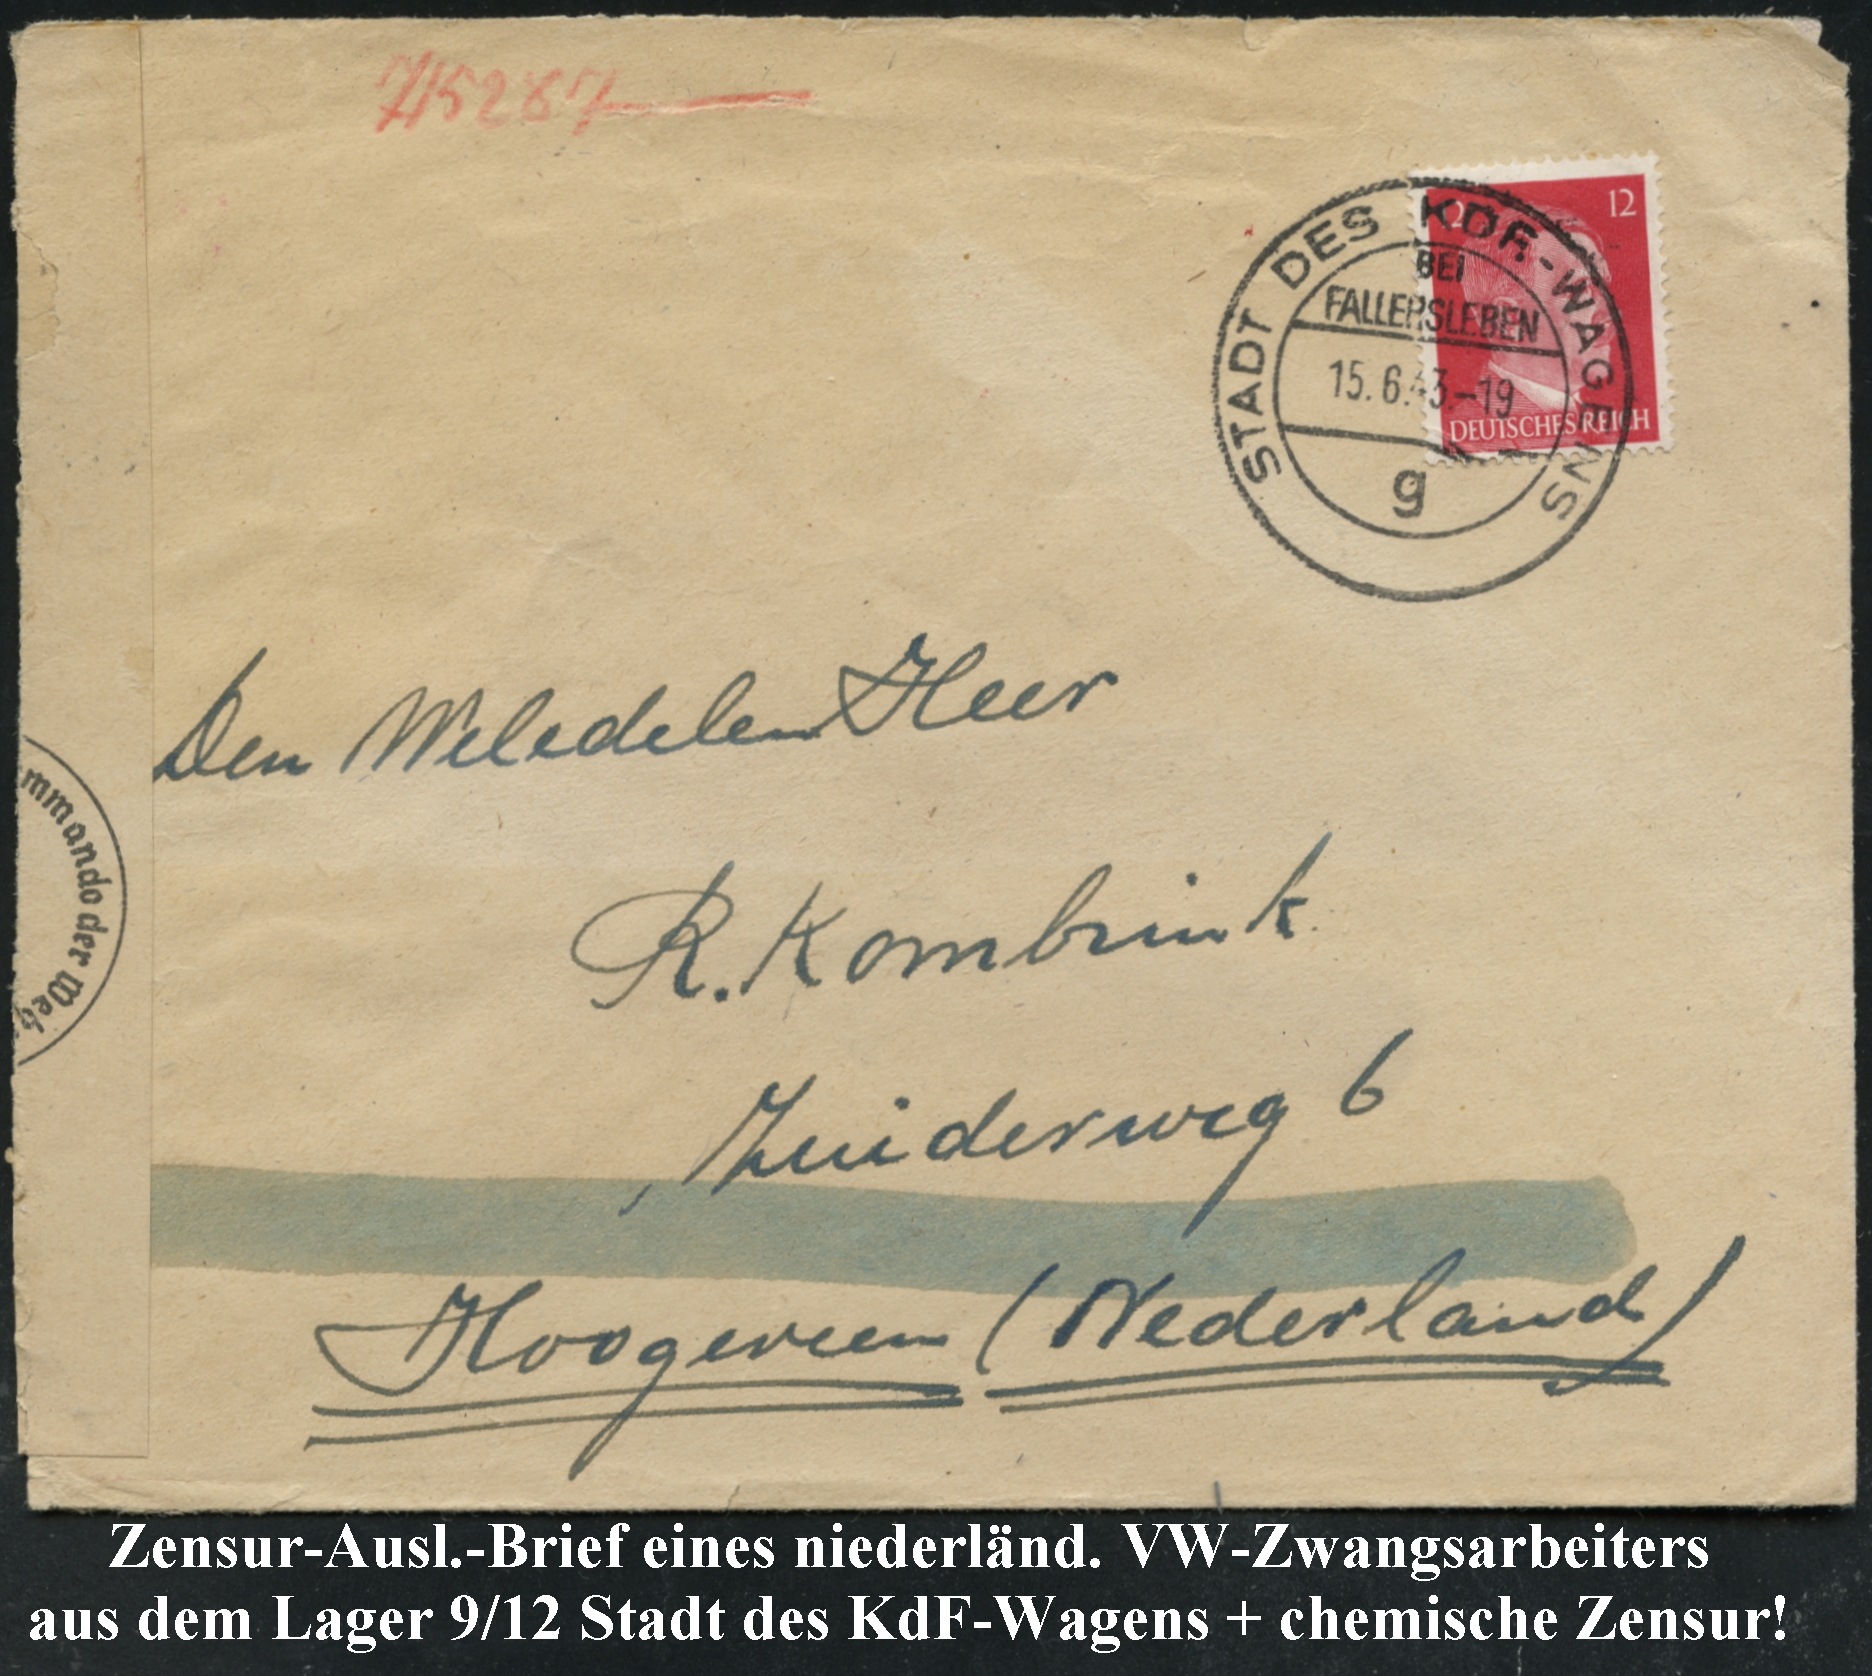 7/15287
12
12
DEUTSCHES REICH
STADT DES KDF.-WAGENS
BEI
FALLERSLEBEN
15.6.43.-19
g
Den Weledelen Heer
mmando der Weh
R. Kombrink
Zuiderweg 6
Hoogeveen (Nederland)
Zensur-Ausl.-Brief eines niederländ. VW-Zwangsarbeiters
aus dem Lager 9/12 Stadt des KdF-Wagens + chemische Zensur!